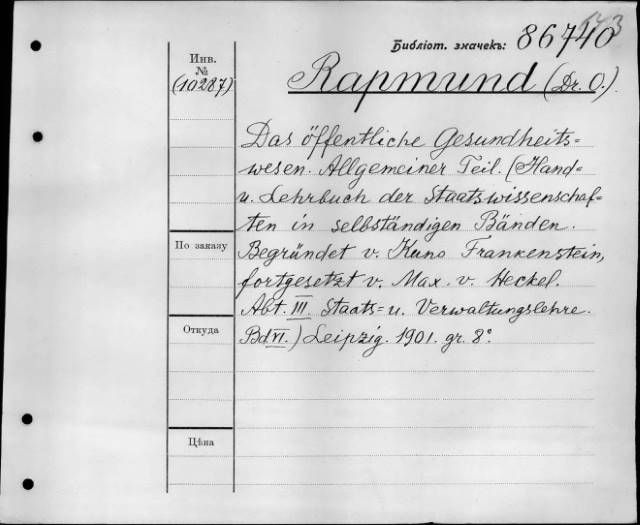 Библіот. значекъ: 86740
Инв.
№
(10287)
Rapmund (Dr. O.).
Das öffentliche Gesundheits=
wesen. Allgemeiner Teil. (Hand=
u. Lehrbuch der Staatswissenschaf=
ten in selbständigen Bänden.
По заказу
Begründet v. Kuno Frankenstein,
fortgesetzt v. Max. v. Heckel.
Abt. III. Staats= u. Verwaltungslehre.
Откуда
Bd VI.) Leipzig. 1901. gr. 8°.
Цѣна